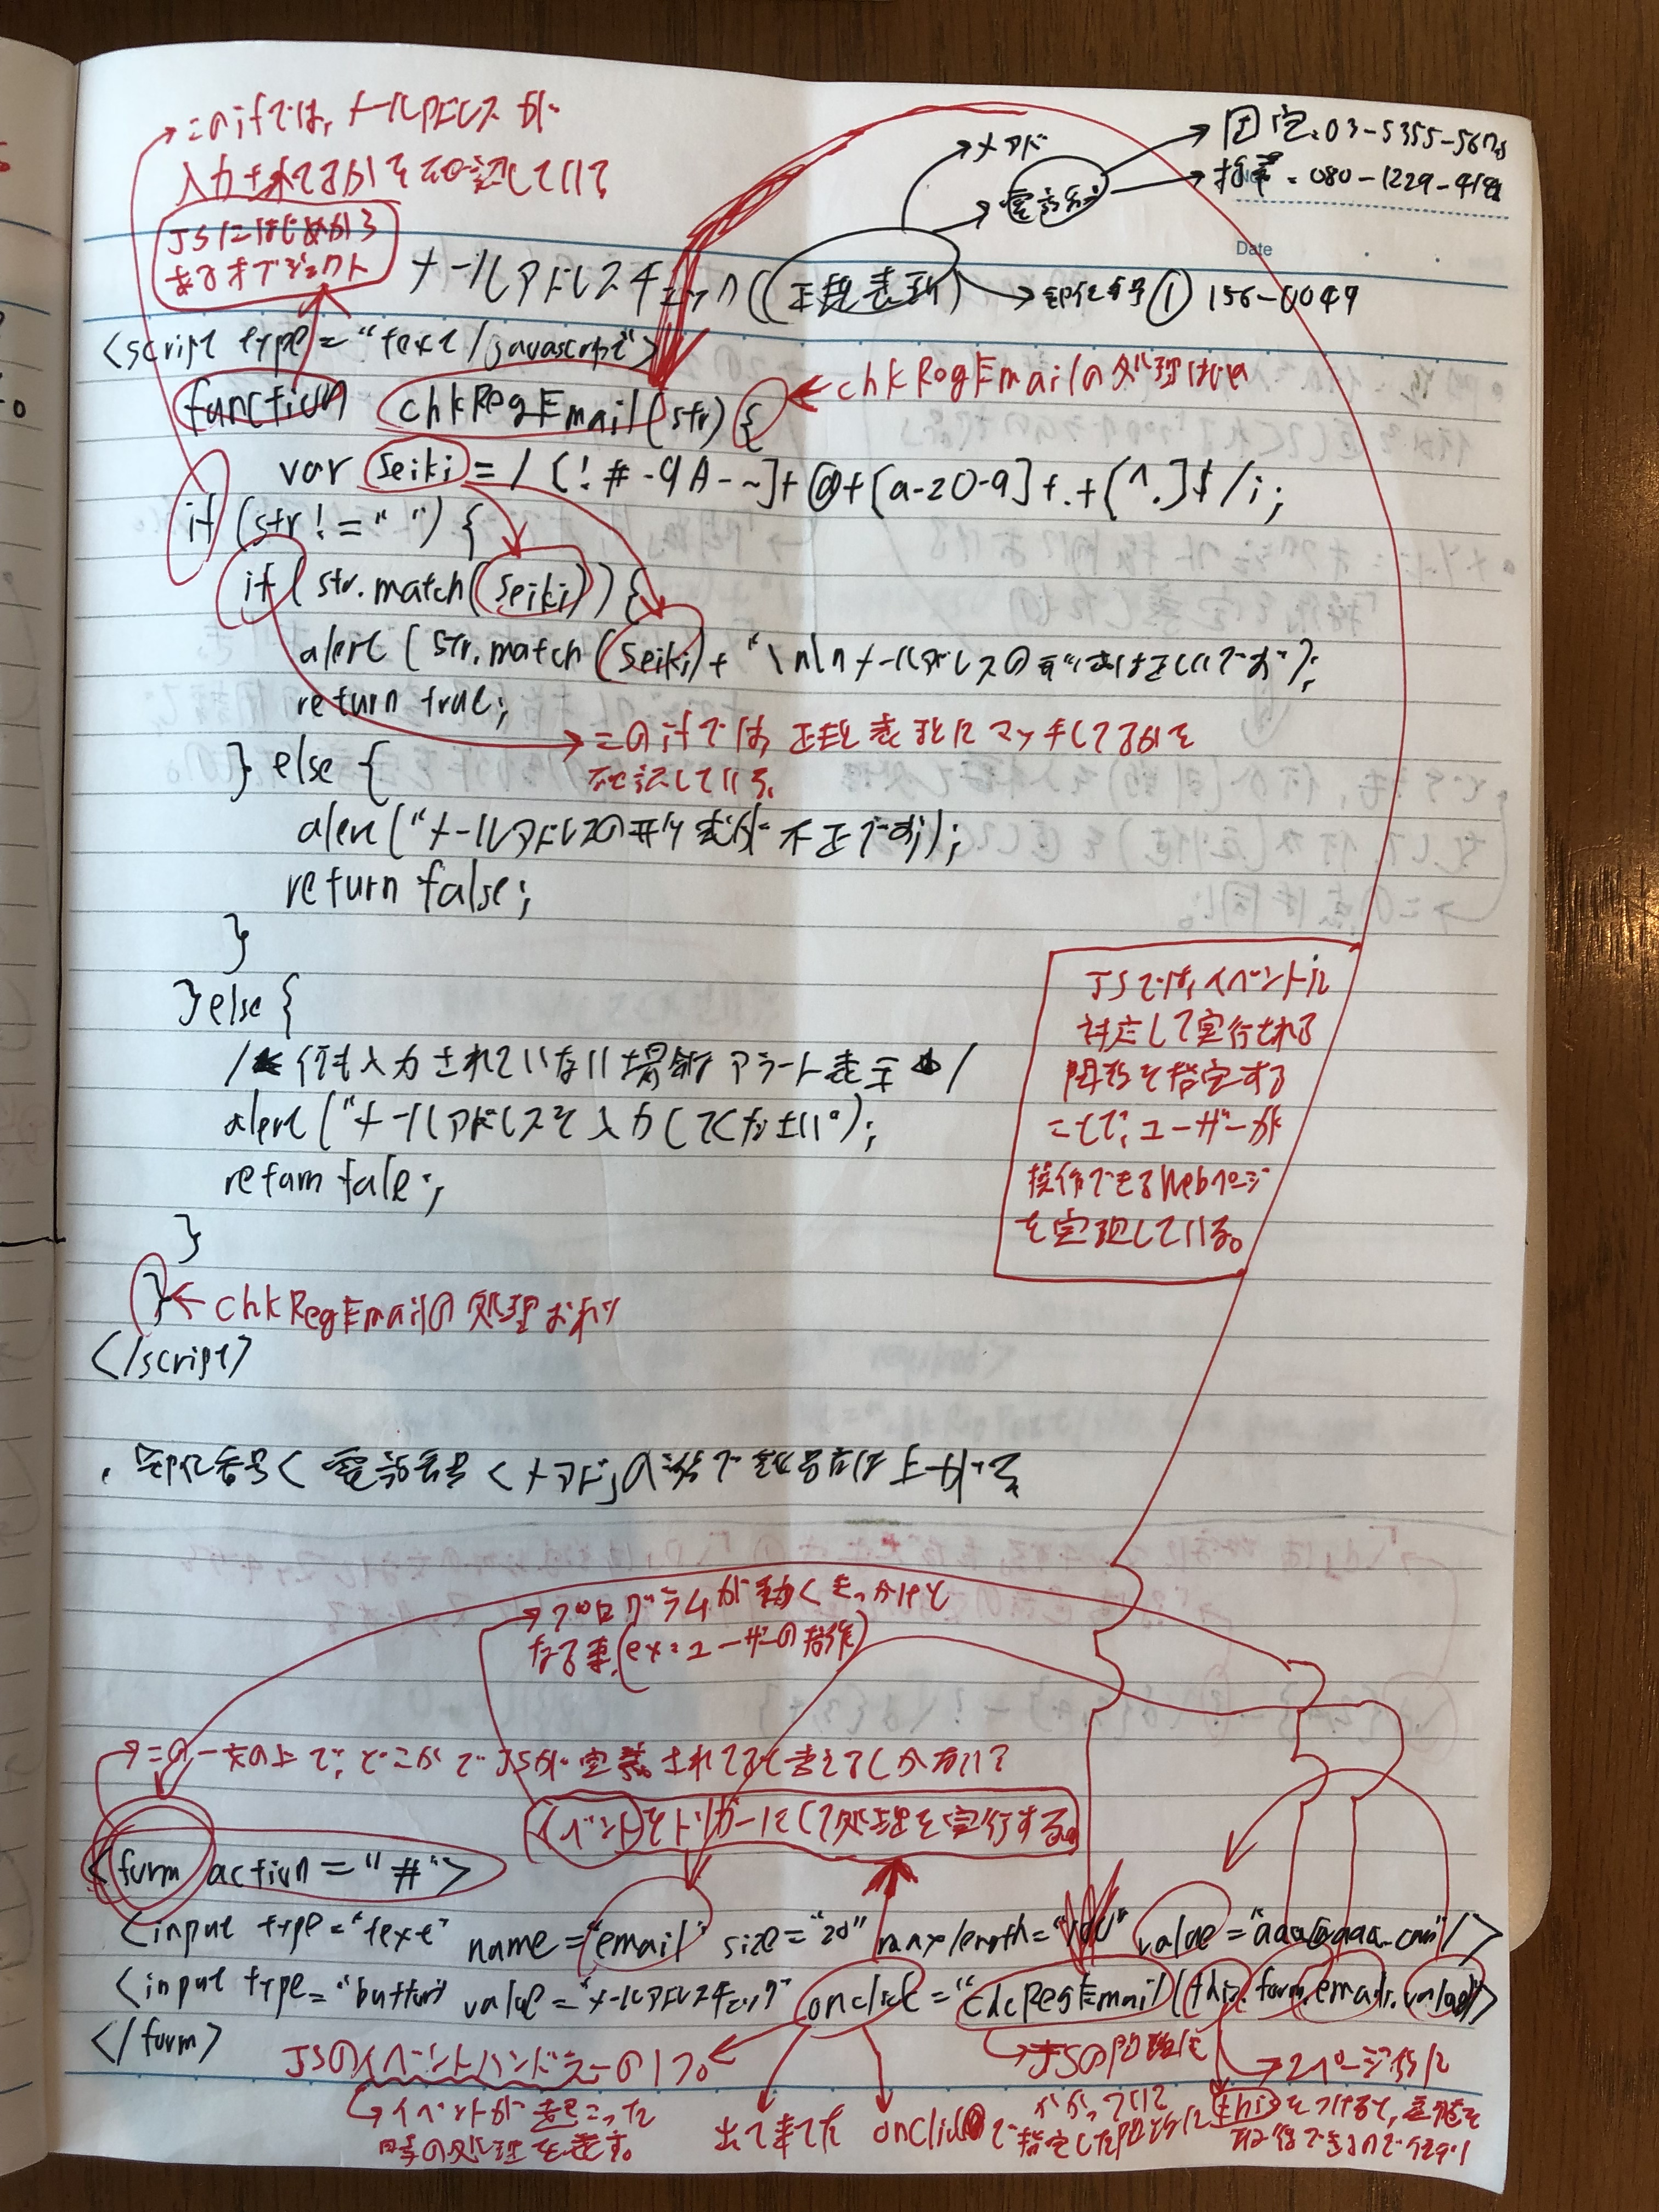 →このifでは、メールアドレスが
入力されてるかを確認している
JSにはじめから
あるオブジェクト
→メアド
→電話
→固定:03-5355-
→携帯:080-1229-
Date
メールアドレスチェック(正規表現)
→郵便番号① 156-0049
<script type="text/javascript">
function chkRegEmail(str){
←chkRegEmailの処理はじめ
var seiki = /[!#-9A-~]+@+[a-z0-9]+.+[^.]$/i;
if (str!=""){
if (str.match(seiki)){
alert(str.match(seiki)+"\n\nメールアドレスの形式は正しいです");
return true;
→このifでは、正規表現にマッチしてるかを
確認している。
} else {
alert("メールアドレスの形式が不正です");
return false;
}
}else{
/* 何も入力されていない場合アラート表示 */
alert("メールアドレスを入力してください");
return fale;
}
}←chkRegEmailの処理おわり
</script>
JSでは、イベントに
対応して実行される
関数を指定する
ことで、ユーザーが
操作できるWebページ
を実現している。
・「郵便番号<電話番号<メアド」の で は上がる
→プログラムが動くきっかけと
なる事。(ex:ユーザーの操作)
→この一文の上で、どこかでJSが定義されてるて言えてしかない?
イベントをトリガーにして処理を実行する。
<form action="#">
<input type="text" name="email" size="20" maxlength="100" value="aaa@aaa.com"/>
<input type="button" value="メールアドレスチェック" onclick="chcRegEmail(this.form.email.value)">
</form>
JSのイベントハンドラーの1つ。
→イベントが起こった
時の処理を表す。
出て来た
onclickで指定した関数に
→JSの関数に
かかっている
→2ページ
thisをつけると、 を
取得できるので